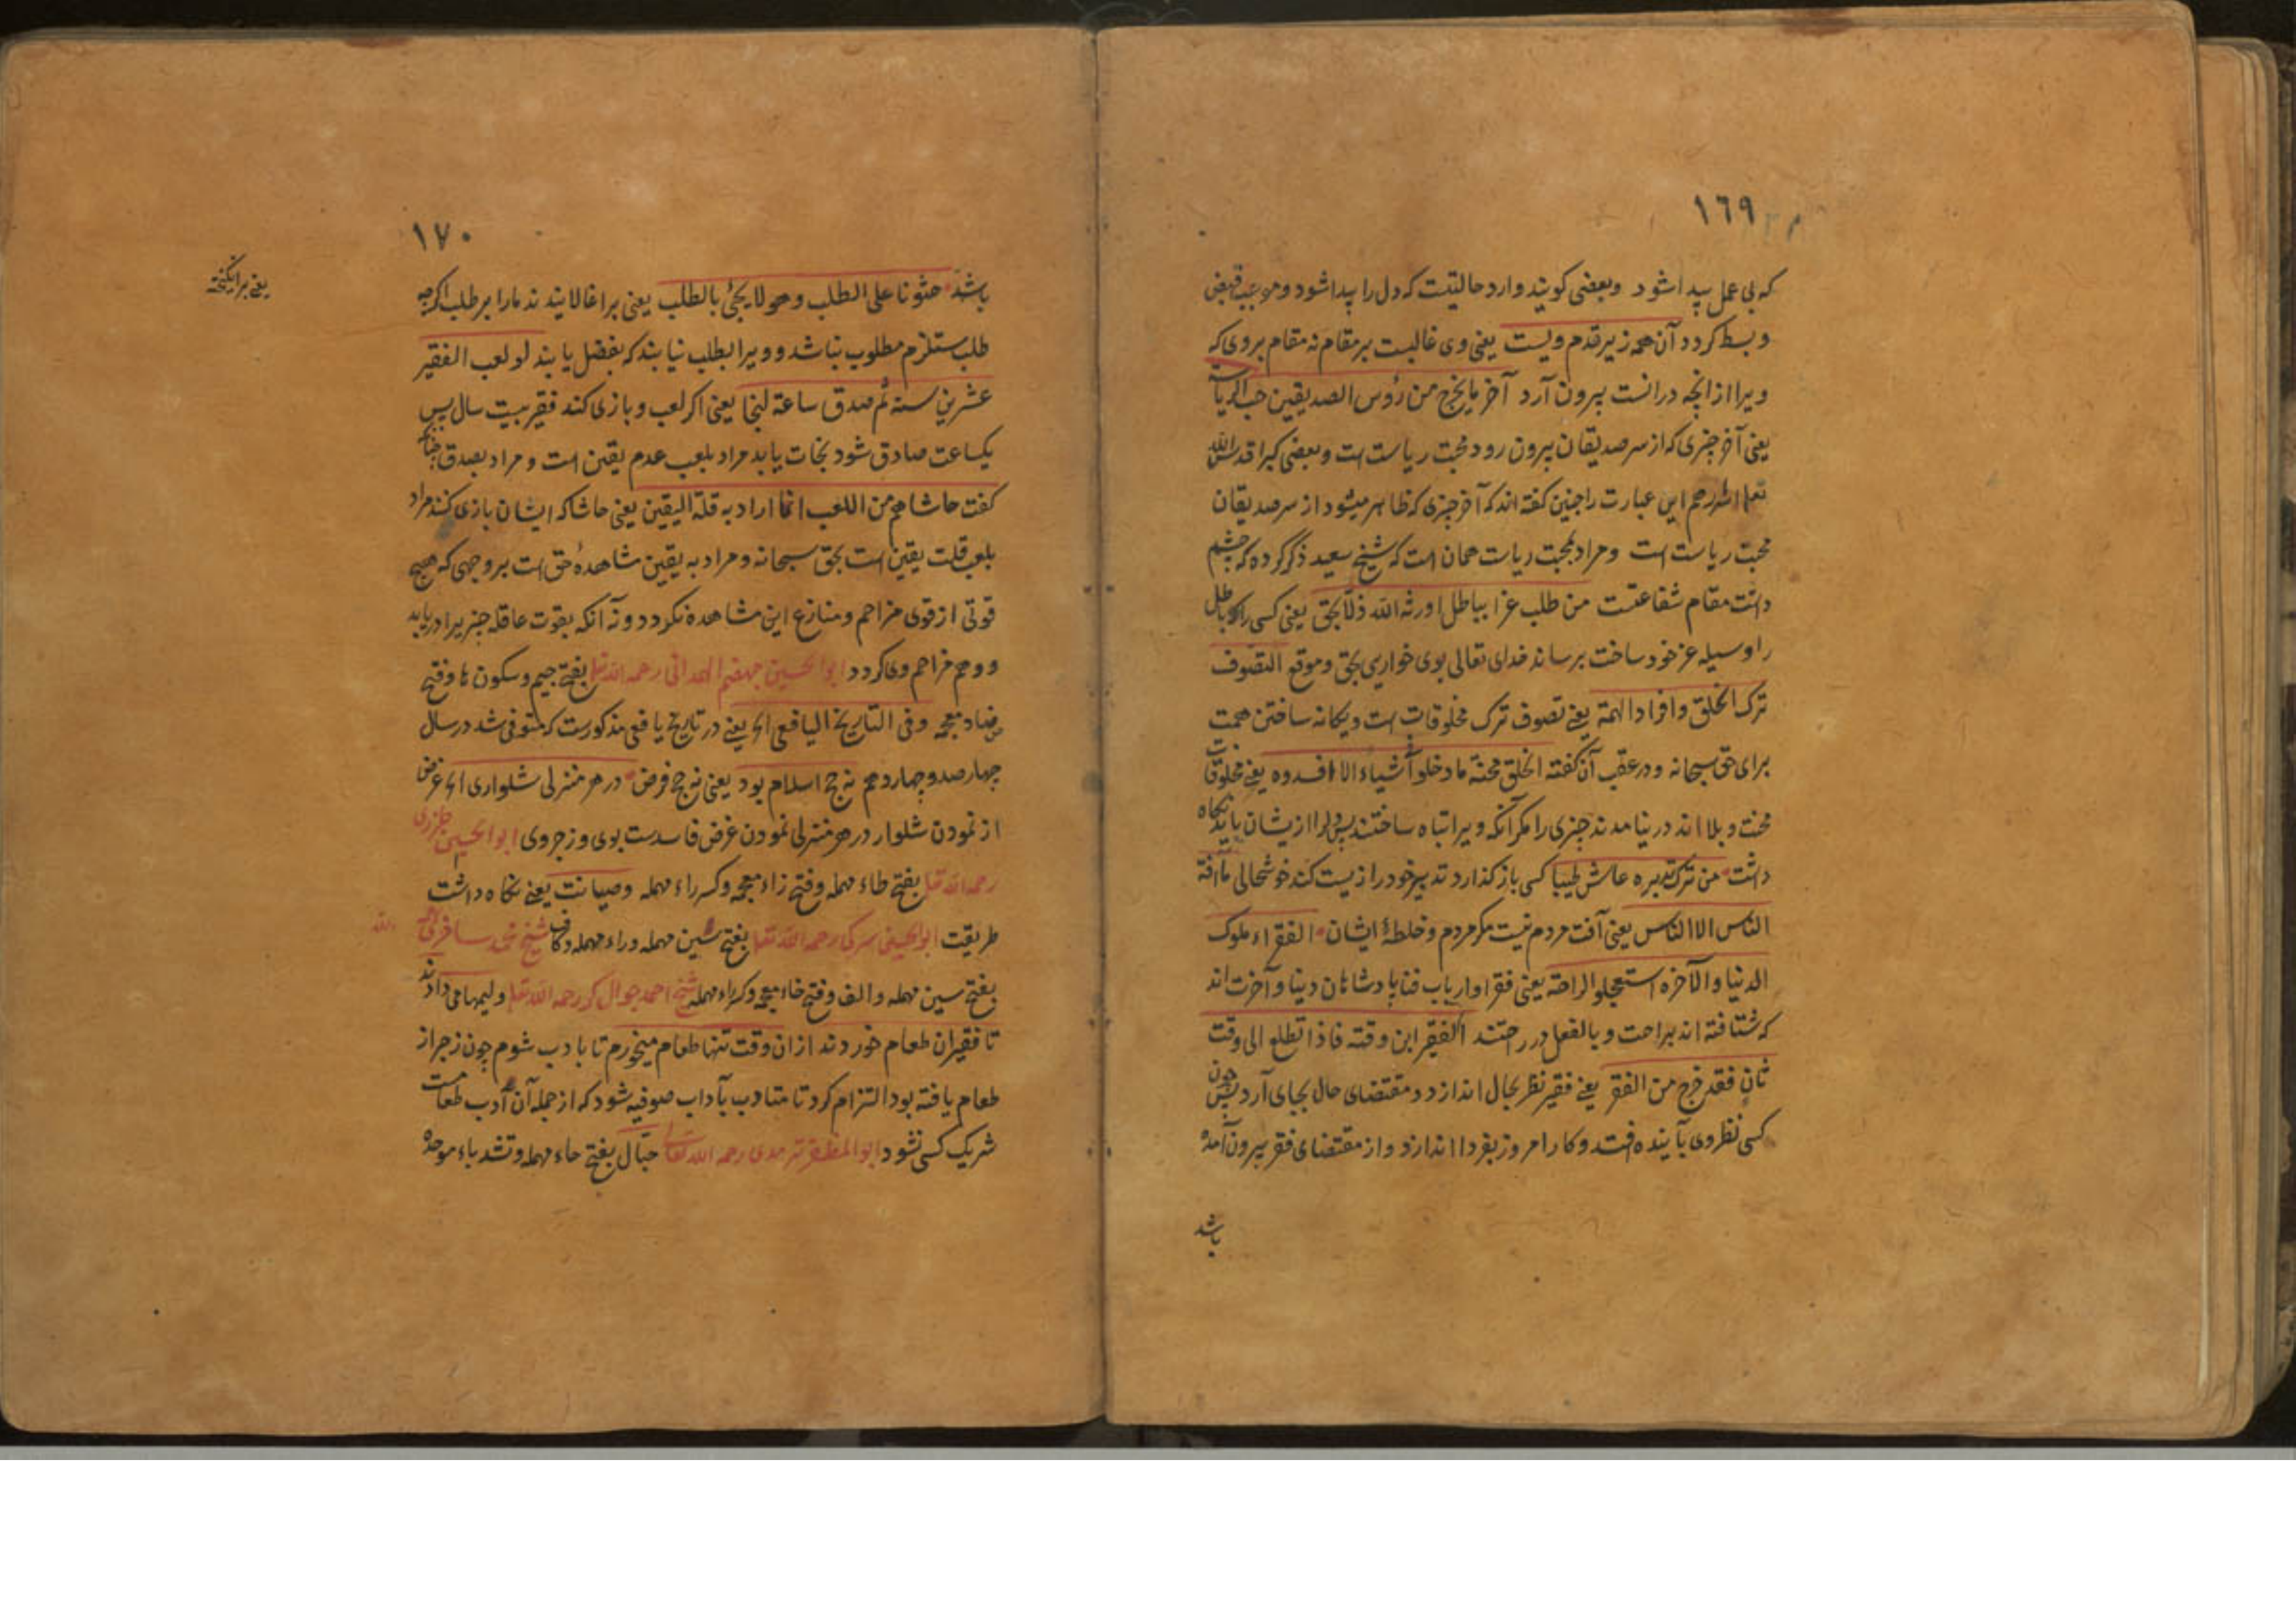 ١٦٩
که بی عمل پیدا شود وبعضی کویند وارد حالتیست که دل را پیدا شود وموجب قبض
وبسط کردد آن همه زیر قدم ویست یعنی وی غالبست بر مقام نه مقام بروی که
ویرا از انچه درانست بیرون آرد آخر ما یخرج من رؤس الصدیقین حب الریاسة
یعنی آخر چیزی که از سر صدیقان بیرون رود محبت ریاست است وبعضی کبرا قدس الله
این عبارت را چنین کفته اند که آخر چیزی که ظاهر میشود از سر صدیقان
محبت ریاست است ومراد بمحبت ریاست همان است که شیخ سعید ذکر کرده که چشم
داشت مقام شفاعتست من طلب عزا بباطل اورثه الله ذلا بحق یعنی کسی را که باطل
را وسیله عز خود ساخت برساند خدای تعالی بوی خواری بحق وموقع التصوف
ترک الخلق وافراد الهمة یعنی تصوف ترک مخلوقات است ویکانه ساختن همت
برای حق سبحانه ودر عقب آن کفته الخلق محنة ما دخلوا شیاء الا افسدوه یعنی مخلوقات
محنت وبلا اند در نیامدند چیزی را مکر آنکه ویرا تباه ساختند پس دلرا ازیشان باید نکاه
داشت من ترک تدبیره عاش طیبا کسی باز کذارد تدبیر خود را زیست کند خوشحالی ما آفة
الناس الا الناس یعنی آفت مردم نیست مکر مردم وخلطهٔ ایشان الفقراء ملوک
الدنیا والآخره استعجلو الراحة یعنی فقرا وارباب فنا پادشاهان دنیا وآخرت اند
که شتافته اند براحت وبالفعل در راحتند الفقیر ابن وقته فاذا تطلع الی وقت
ثان فقد خرج من الفقر یعنی فقیر نظر بحال اندازد ومقتضای حال بجای آرد پس چون
کسی نظر وی بآینده افتد وکار امروز بفردا اندازد واز مقتضای فقر بیرون آمده
باشد
١٧٠
باشد حثونا علی الطلب وهو لا یجئ بالطلب یعنی بر اغالانیدند مارا بر طلب اکرچه
یعنی برانکیخته
طلب مستلزم مطلوب نباشد وویرا بطلب نیابند که بفضل یابند لو لعب الفقیر
عشرین سنة ثم صدق ساعة لنجا یعنی اکر لعب وبازی کند فقیر بیست سال پس
یکساعت صادق شود نجات یابد مراد بلعب عدم یقین است ومراد بصدق چنانکه
کفت حاشاهم من اللعب انما اراد به قلة الیقین یعنی حاشا که ایشان بازی کنند مراد
بلعب قلت یقین است بحق سبحانه ومراد به یقین مشاهدهٔ حق است بروجهی که هیچ
قوتی از قوی مزاحم ومنازع این مشاهده نکردد ونه آنکه بقوت عاقله چیزیرا دریابد
ووهم مزاحم وی کردد ابوالحسین جهضم الهمدانی رحمه الله تعا بفتح جیم وسکون ها وفتح
ضاد معجمه وفی التاریخ الیافعی الخ یعنی در تاریخ یافعی مذکورست که متوفی شد در سال
چهارصد وچهاردهم نه حج اسلام بود یعنی نه حج فرض در هر منزلی شلواری الخ غرض
از نمودن شلوار در هر منزلی نمودن غرض فاسدست بوی وزجر وی ابوالحسین طزری
رحمه الله تعا بفتح طاء مهمله وفتح زاء معجمه وکسر راء مهمله وصیانت یعنی نکاه داشت
طریقت ابوالحسین سرکی رحمه الله تعا بفتح سین مهمله وراء مهمله وکاف شیخ محمد ساخری رحمه الله
بفتح سین مهمله والف وفتح خاء معجمه وکسر راء مهمله شیخ احمد جوال کر رحمه الله تعا ولیمها می دادند
تا فقیران طعام خوردند ازان وقت تنها طعام میخورم تا با ادب شوم چون زجر از
طعام یافته بود التزام کرد تا متادب بآداب صوفیه شود که از جمله آن ادب طعامست
شریک کسی نشود ابوالمظفر ترمدی رحمه الله تعالی حبال بفتح حاء مهمله وتشدید باء موحده